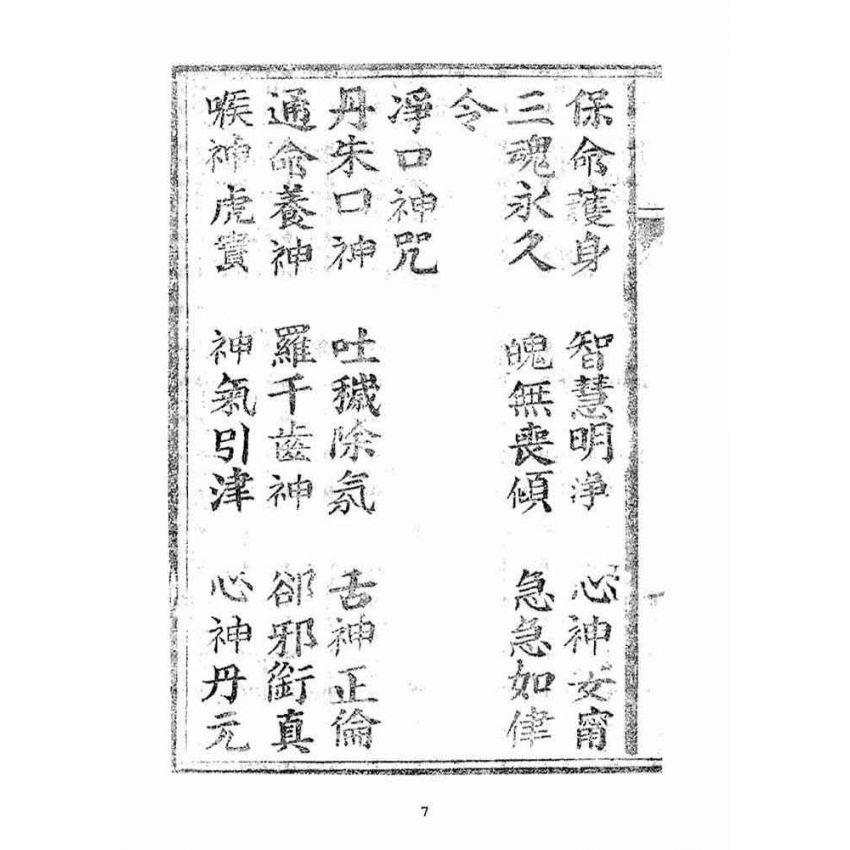 保命護身　智慧明淨　心神安甯
三魂永久　魄無喪傾　急急如律
令
凈口神咒
丹朱口神　吐穢除氛　舌神正倫
通命養神　羅千齒神　卻邪衛真
喉神虎賁　神氣引津　心神丹元
7